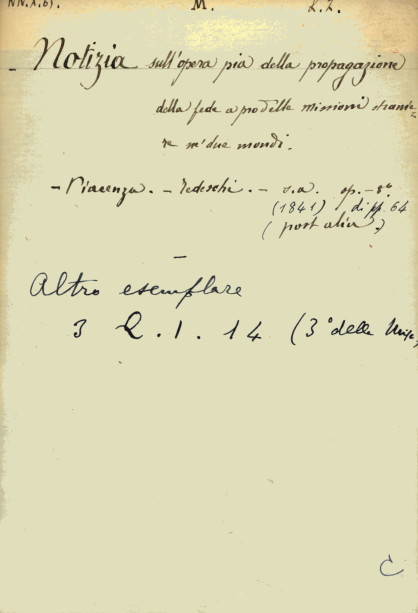 NN.X.61. M. L.Z.
- Notizia sull'opera pia della propagazione
della fede a pro delle missioni stranie=
re ne' due mondi.
- Piacenza. - Tedeschi. - s.a. op. - 8°
(1841) di pp. 64
(post alia)
Altro esemplare
3 Q.1.14 (3° della Misc.)
C